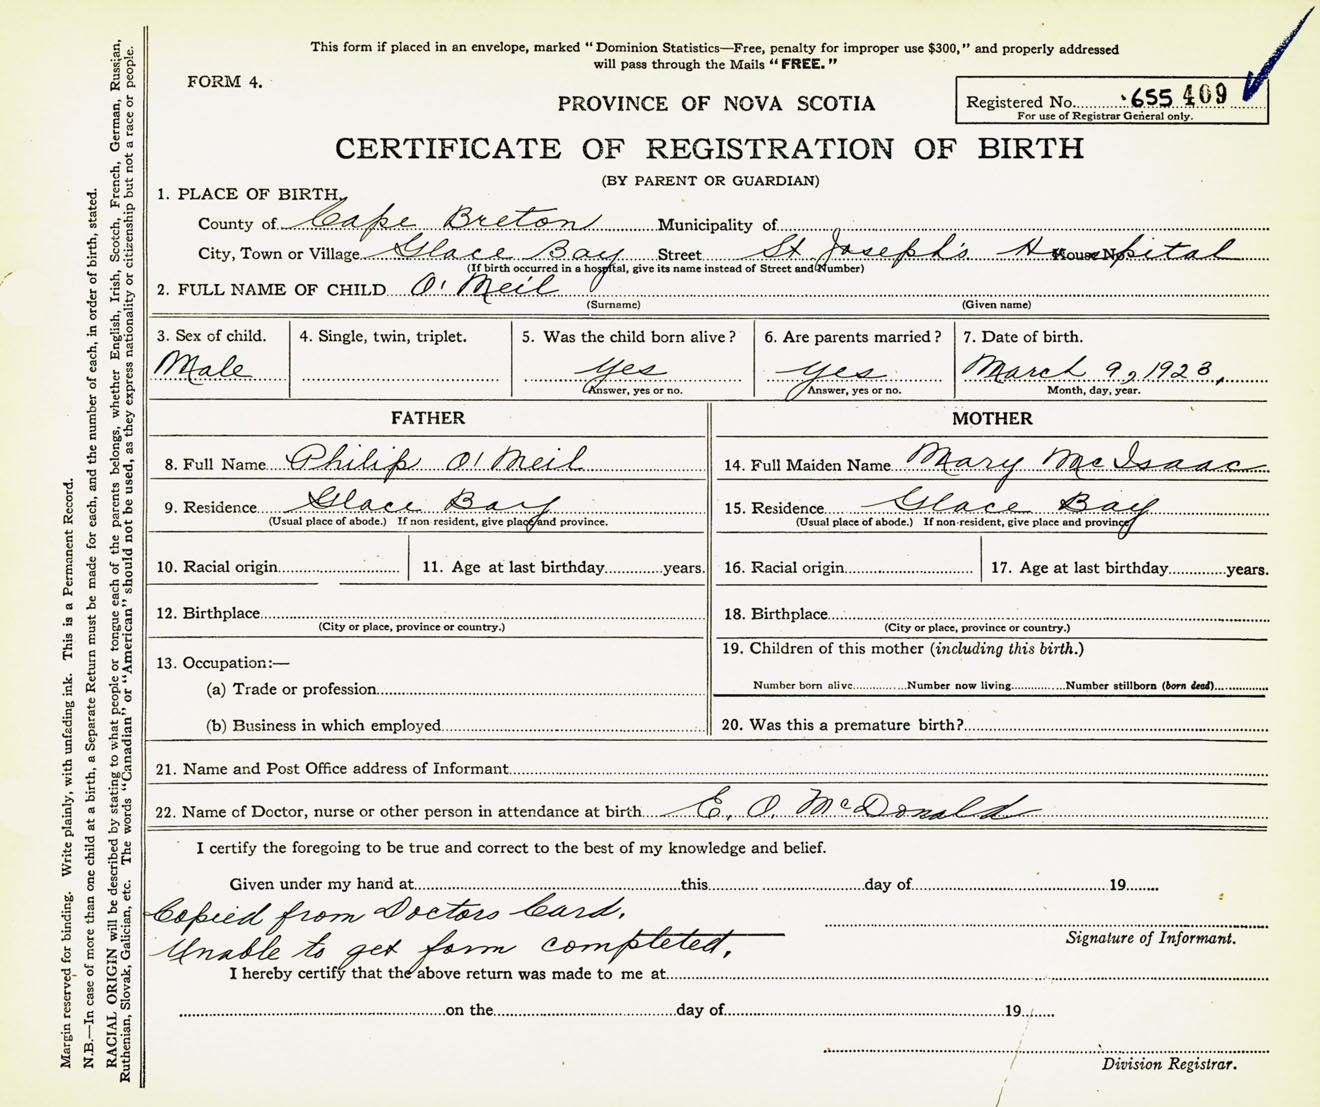 This form if placed in an envelope, marked “Dominion Statistics—Free, penalty for improper use $300,” and properly addressed
will pass through the Mails “FREE.”
FORM 4.
PROVINCE OF NOVA SCOTIA
Registered No. 655 409
For use of Registrar General only.
CERTIFICATE OF REGISTRATION OF BIRTH
(BY PARENT OR GUARDIAN)
1. PLACE OF BIRTH,
County of Cape Breton Municipality of
City, Town or Village Glace Bay Street St Joseph's Hospital House No
(If birth occurred in a hospital, give its name instead of Street and Number)
2. FULL NAME OF CHILD O'Neil
(Surname) (Given name)
3. Sex of child. 4. Single, twin, triplet. 5. Was the child born alive? 6. Are parents married? 7. Date of birth.
Male Yes Yes March 9, 1923,
Answer, yes or no. Answer, yes or no. Month, day, year.
FATHER MOTHER
8. Full Name Philip O'Neil 14. Full Maiden Name Mary McIsaac
9. Residence Glace Bay 15. Residence Glace Bay
(Usual place of abode.) If non resident, give place and province. (Usual place of abode.) If non-resident, give place and province
10. Racial origin 11. Age at last birthday years. 16. Racial origin 17. Age at last birthday years.
12. Birthplace 18. Birthplace
(City or place, province or country.) (City or place, province or country.)
19. Children of this mother (including this birth.)
13. Occupation:—
(a) Trade or profession Number born alive Number now living Number stillborn (born dead)
(b) Business in which employed 20. Was this a premature birth?
21. Name and Post Office address of Informant
22. Name of Doctor, nurse or other person in attendance at birth E. O. McDonald
I certify the foregoing to be true and correct to the best of my knowledge and belief.
Given under my hand at this day of 19
Copied from Doctors Card.
Signature of Informant.
Unable to get form completed.
I hereby certify that the above return was made to me at
on the day of 19
Division Registrar.
Margin reserved for binding. Write plainly, with unfading ink. This is a Permanent Record.
N.B.—In case of more than one child at a birth, a Separate Return must be made for each, and the number of each, in order of birth, stated.
RACIAL ORIGIN will be described by stating to what people or tongue each of the parents belongs, whether English, Irish, Scotch, French, German, Russian,
Ruthenian, Slovak, Galician, etc. The words “Canadian” or “American” should not be used, as they express nationality or citizenship but not a race or people.